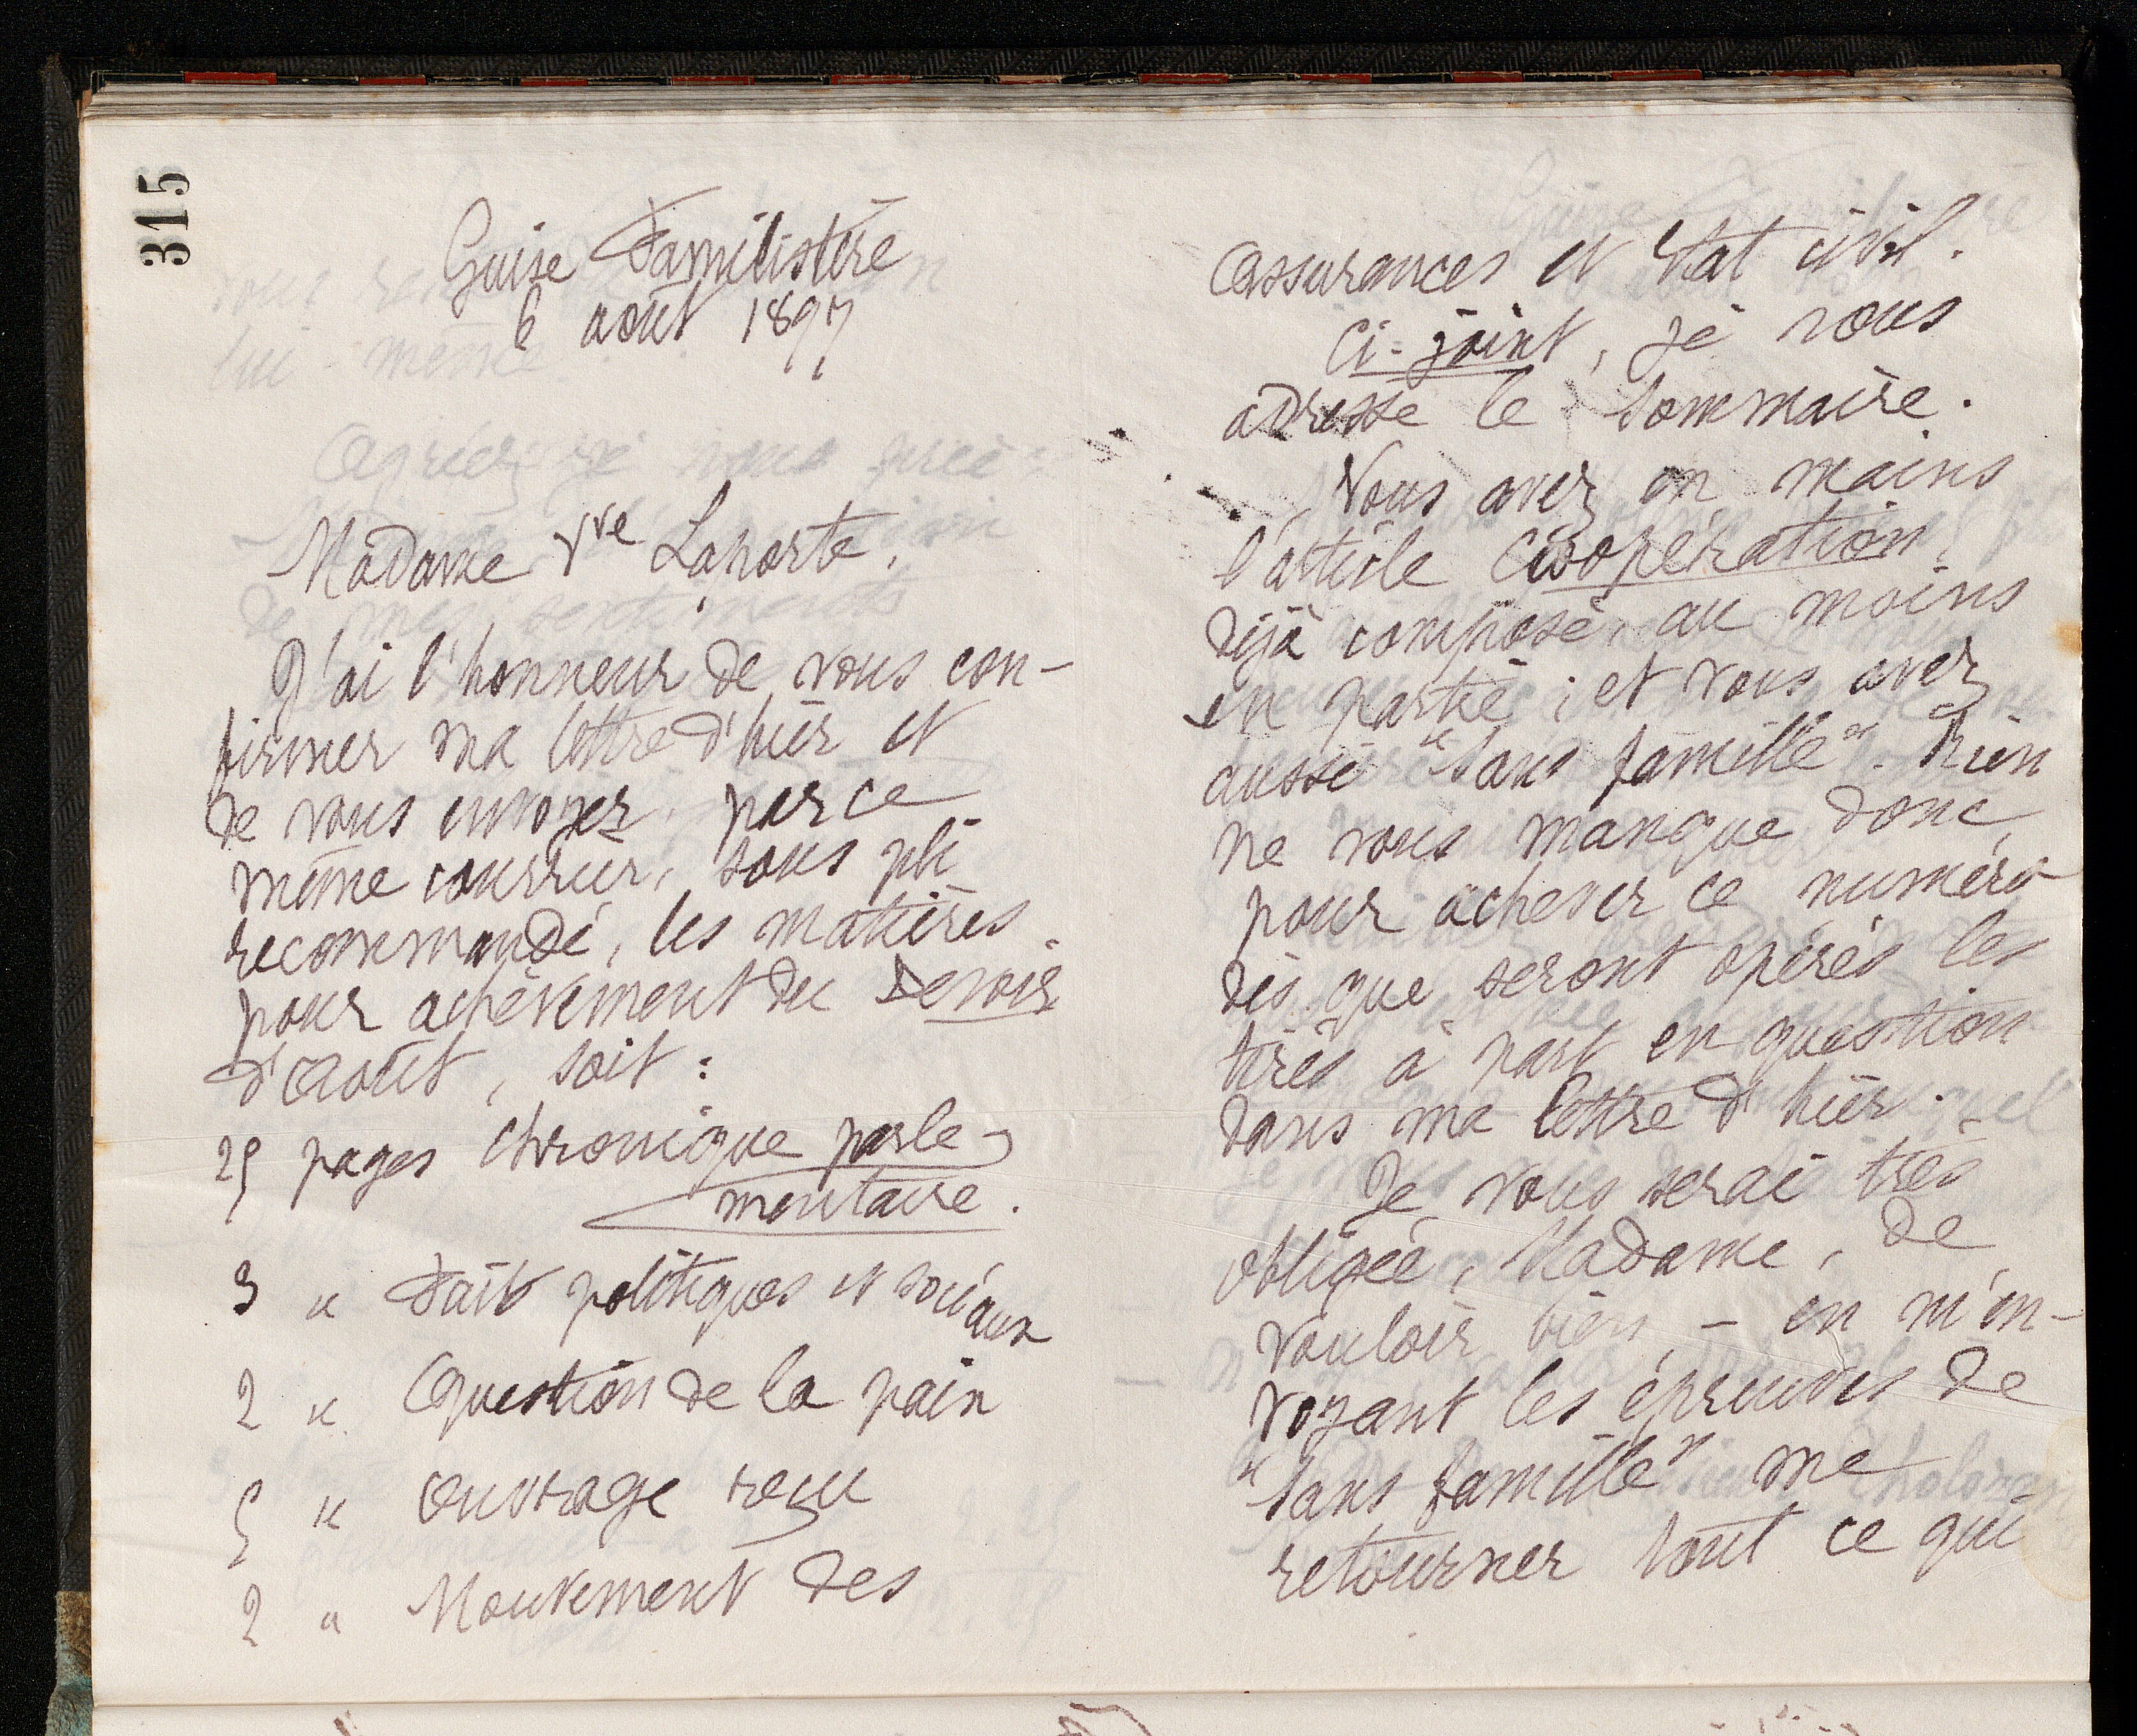 315
Guise Familistère
6 août 1897
Madame Vve Laporte,
J'ai l'honneur de vous con-
firmer ma lettre d'hier et
de vous envoyer, par ce
même courrier, sous pli
recommandé, les matières
pour achèvement du Devoir
d'Août, soit :
25 pages Chronique parle-
mentaire.
3 " Faits politiques et sociaux
2 " Question de la paix
5 " Ouvrage reçu
2 " Mouvement des
Assurances et état civil.
Ci-joint, je vous
adresse le sommaire.
Vous avez en mains
l'article Coopération,
déjà composé, au moins
en partie ; et vous avez
aussi "Sans famille". Rien
ne vous manque donc
pour achever ce numéro
dès que seront opérés les
tirés à part en question
dans ma lettre d'hier.
Je vous serai très
obligée, Madame, de
vouloir bien, - en m'en-
voyant les épreuves de
"Sans famille" me
retourner tout ce qui